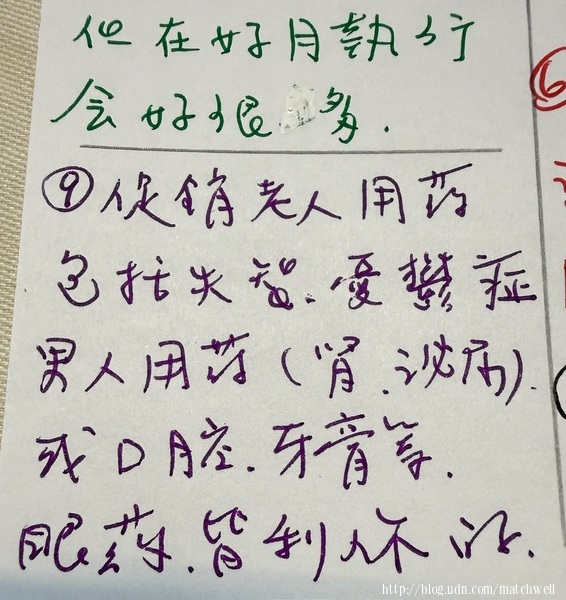 但在好月執行
会好很多.
⑨促銷老人用药
包括失智.憂鬱症
男人用药(肾.泌尿).
或口腔.牙膏等.
眼药.皆利人不
6
http://blog.udn.com/matchwell